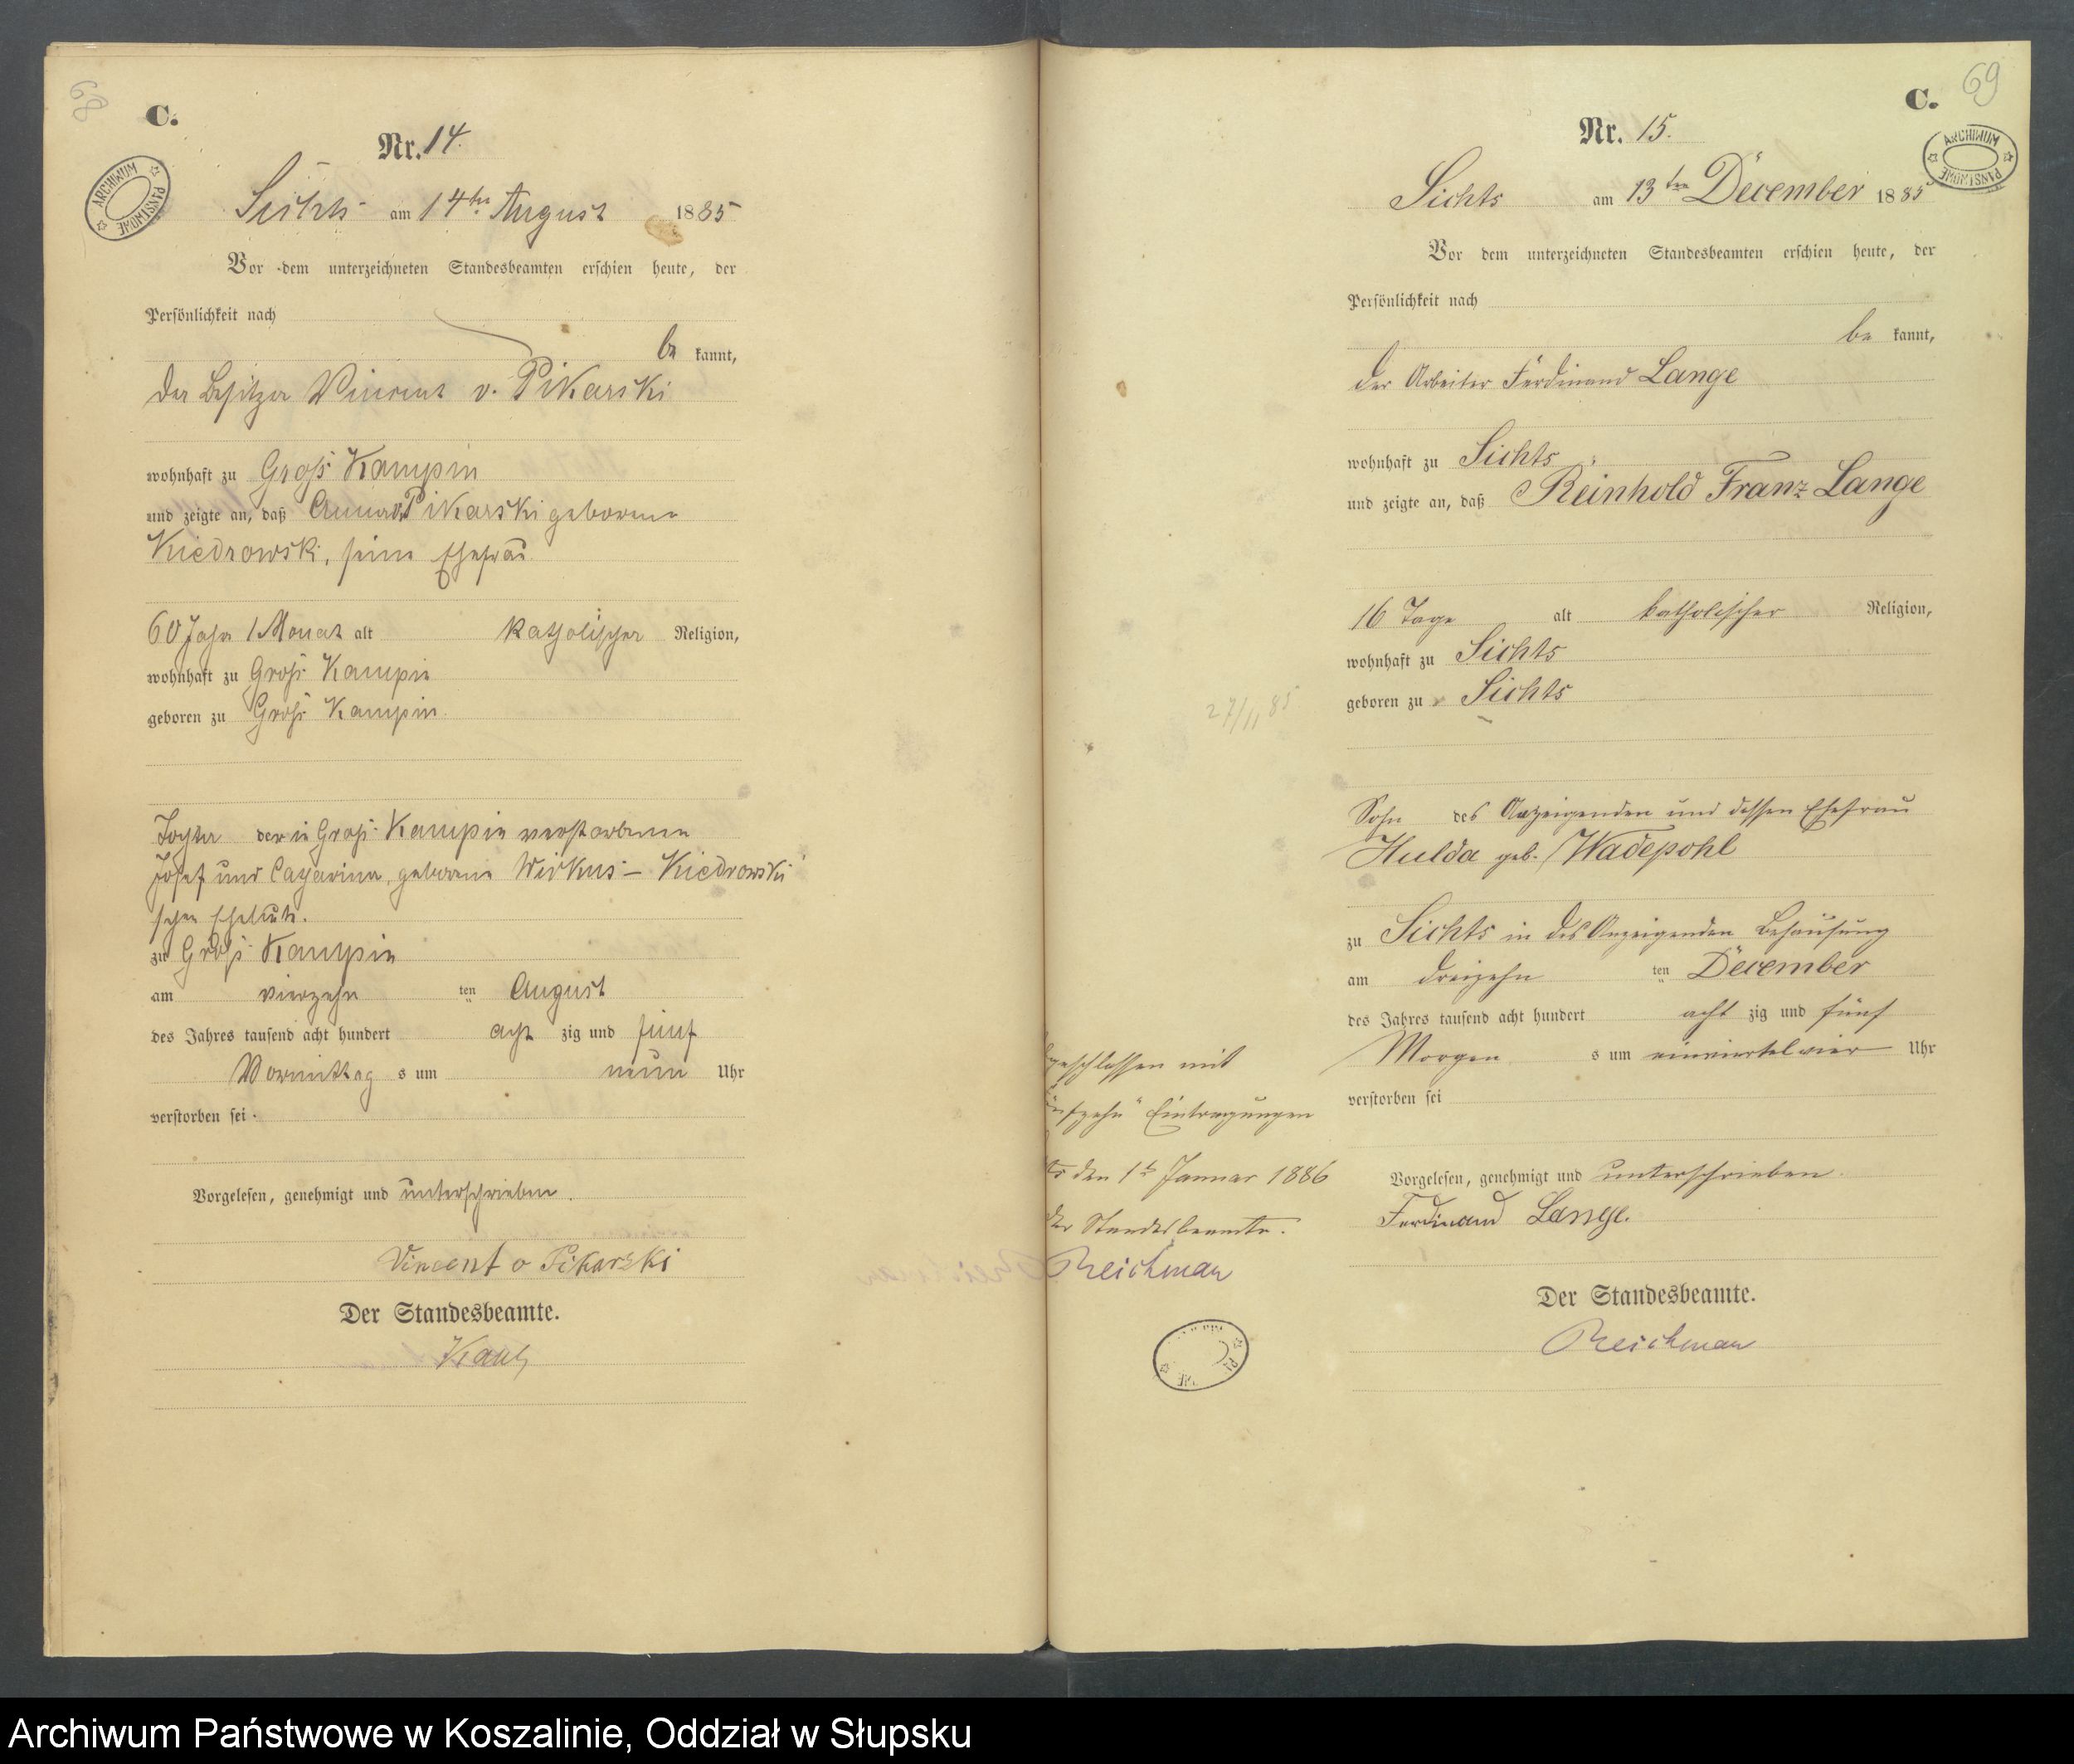 68
C.
Nr. 14.
ARCHIWUM PAŃSTWOWE
Sichts am 14ten August 1885
Vor dem unterzeichneten Standesbeamten erschien heute, der
Persönlichkeit nach
be kannt,
der Besitzer Vincent v. Pikarski
wohnhaft zu Groß Kampin
und zeigte an, daß Anna v. Pikarski geborene
Kiedrowski, seine Ehefrau
60 Jahr 1 Monat alt katholischer Religion,
wohnhaft zu Groß Kampin
geboren zu Groß Kampin
Tochter der in Groß Kampin verstorbenen
Josef und Catharina, geborene Wirkus – Kiedrowski
schen Eheleute.
zu Groß Kampin
am vierzehn ten August
des Jahres tausend acht hundert acht zig und fünf
Vormittag s um neun Uhr
verstorben sei
Vorgelesen, genehmigt und unterschrieben.
Vincent v Pikarski
Der Standesbeamte.
69
C.
Nr. 15.
ARCHIWUM PAŃSTWOWE
Sichts am 13ten December 1885
Vor dem unterzeichneten Standesbeamten erschien heute, der
Persönlichkeit nach
be kannt,
der Arbeiter Ferdinand Lange
wohnhaft zu Sichts
und zeigte an, daß Reinhold Franz Lange
16 Tage alt katholischer Religion,
wohnhaft zu Sichts
geboren zu Sichts
27/11 85
Sohn des Anzeigenden und dessen Ehefrau
Hulda geb. Wadepohl
zu Sichts in des Anzeigenden Behausung
am dreizehn ten December
des Jahres tausend acht hundert acht zig und fünf
Morgen s um einviertel vier Uhr
verstorben sei
Vorgelesen, genehmigt und unterschrieben.
Ferdinand Lange.
Der Standesbeamte.
Reichman
geschlossen mit
fünfzehn" Eintragungen
den 1t Januar 1886
Der Standesbeamte.
Reichman
Archiwum Państwowe w Koszalinie, Oddział w Słupsku